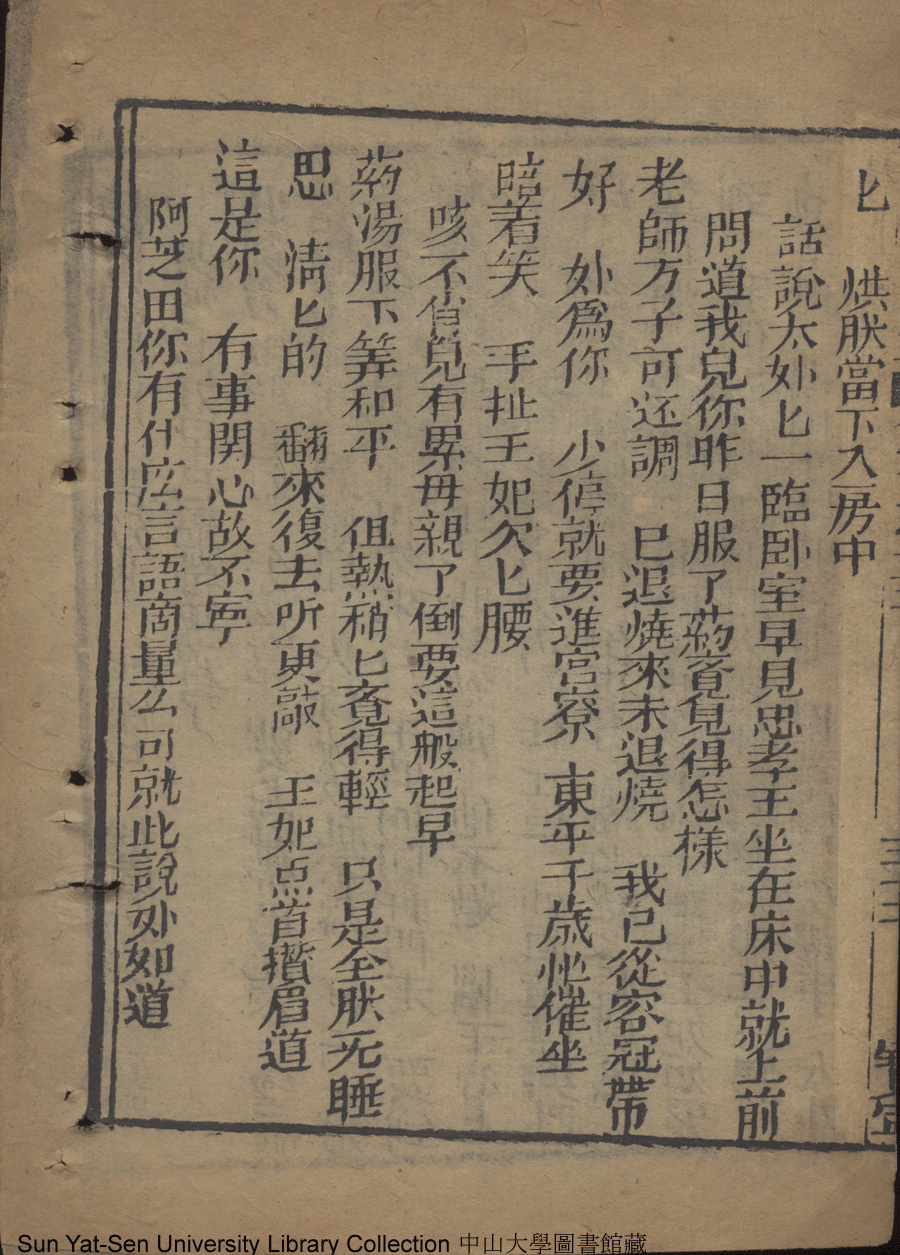 匕　烘朕當下入房中
話說太妃匕一臨卧室早見忠孝王坐在床中就上前
問道我兒你昨日服了药竟覚得怎樣
老師方子可还調　已退燒來未退燒　我已從容冠帶
好　妳爲你　少停就要進宫寮　東平千歲忙催坐
暗着笑　手扯王妃欠匕腰
咳不肖児有累母親了倒要這般起早
药湯服下筭和平　但熱稍匕覔得輕　只是全朕无睡
思　清匕的　翻來復去听更敲　王妃点首攅眉道
這是你　有事関心故不寧
阿芝田你有什庅言語商量么可就此說妳如道
Sun Yat-Sen University Library Collection 中山大學圖書館藏